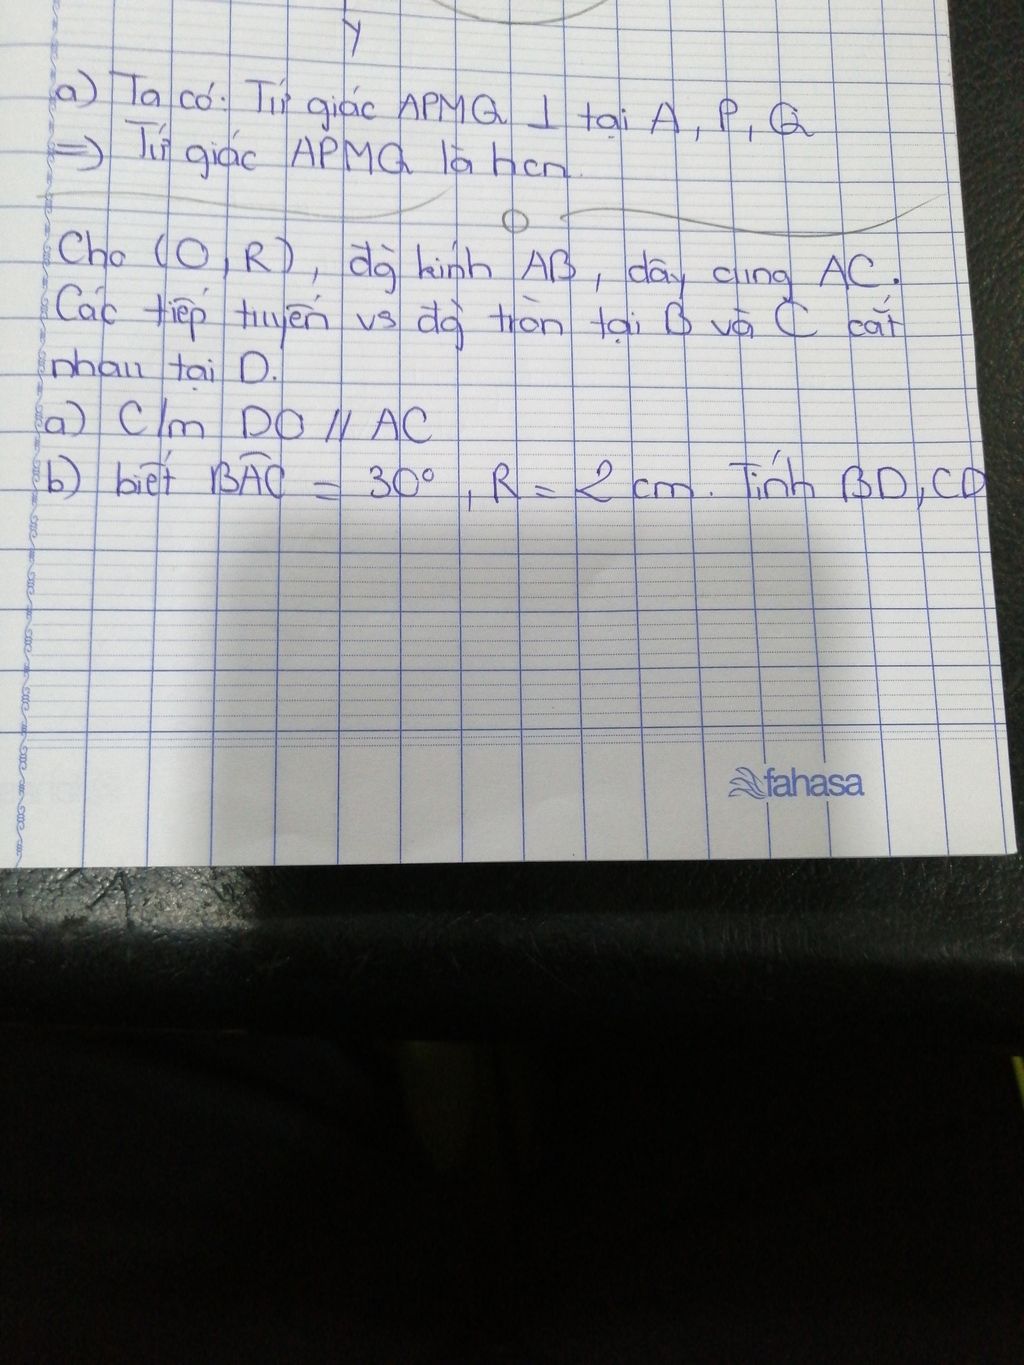 Y
a) Ta có: Tứ giác APMQ ⊥ tại A, P, Q
=> Tứ giác APMQ là hcn
Cho (O, R), đg kính AB, dây cung AC.
Các tiếp tuyến vs đg tròn tại B và C cắt
nhau tại D.
a) C/m DO // AC
b) biết BAC = 30°, R = 2 cm. Tính BD, CD
fahasa